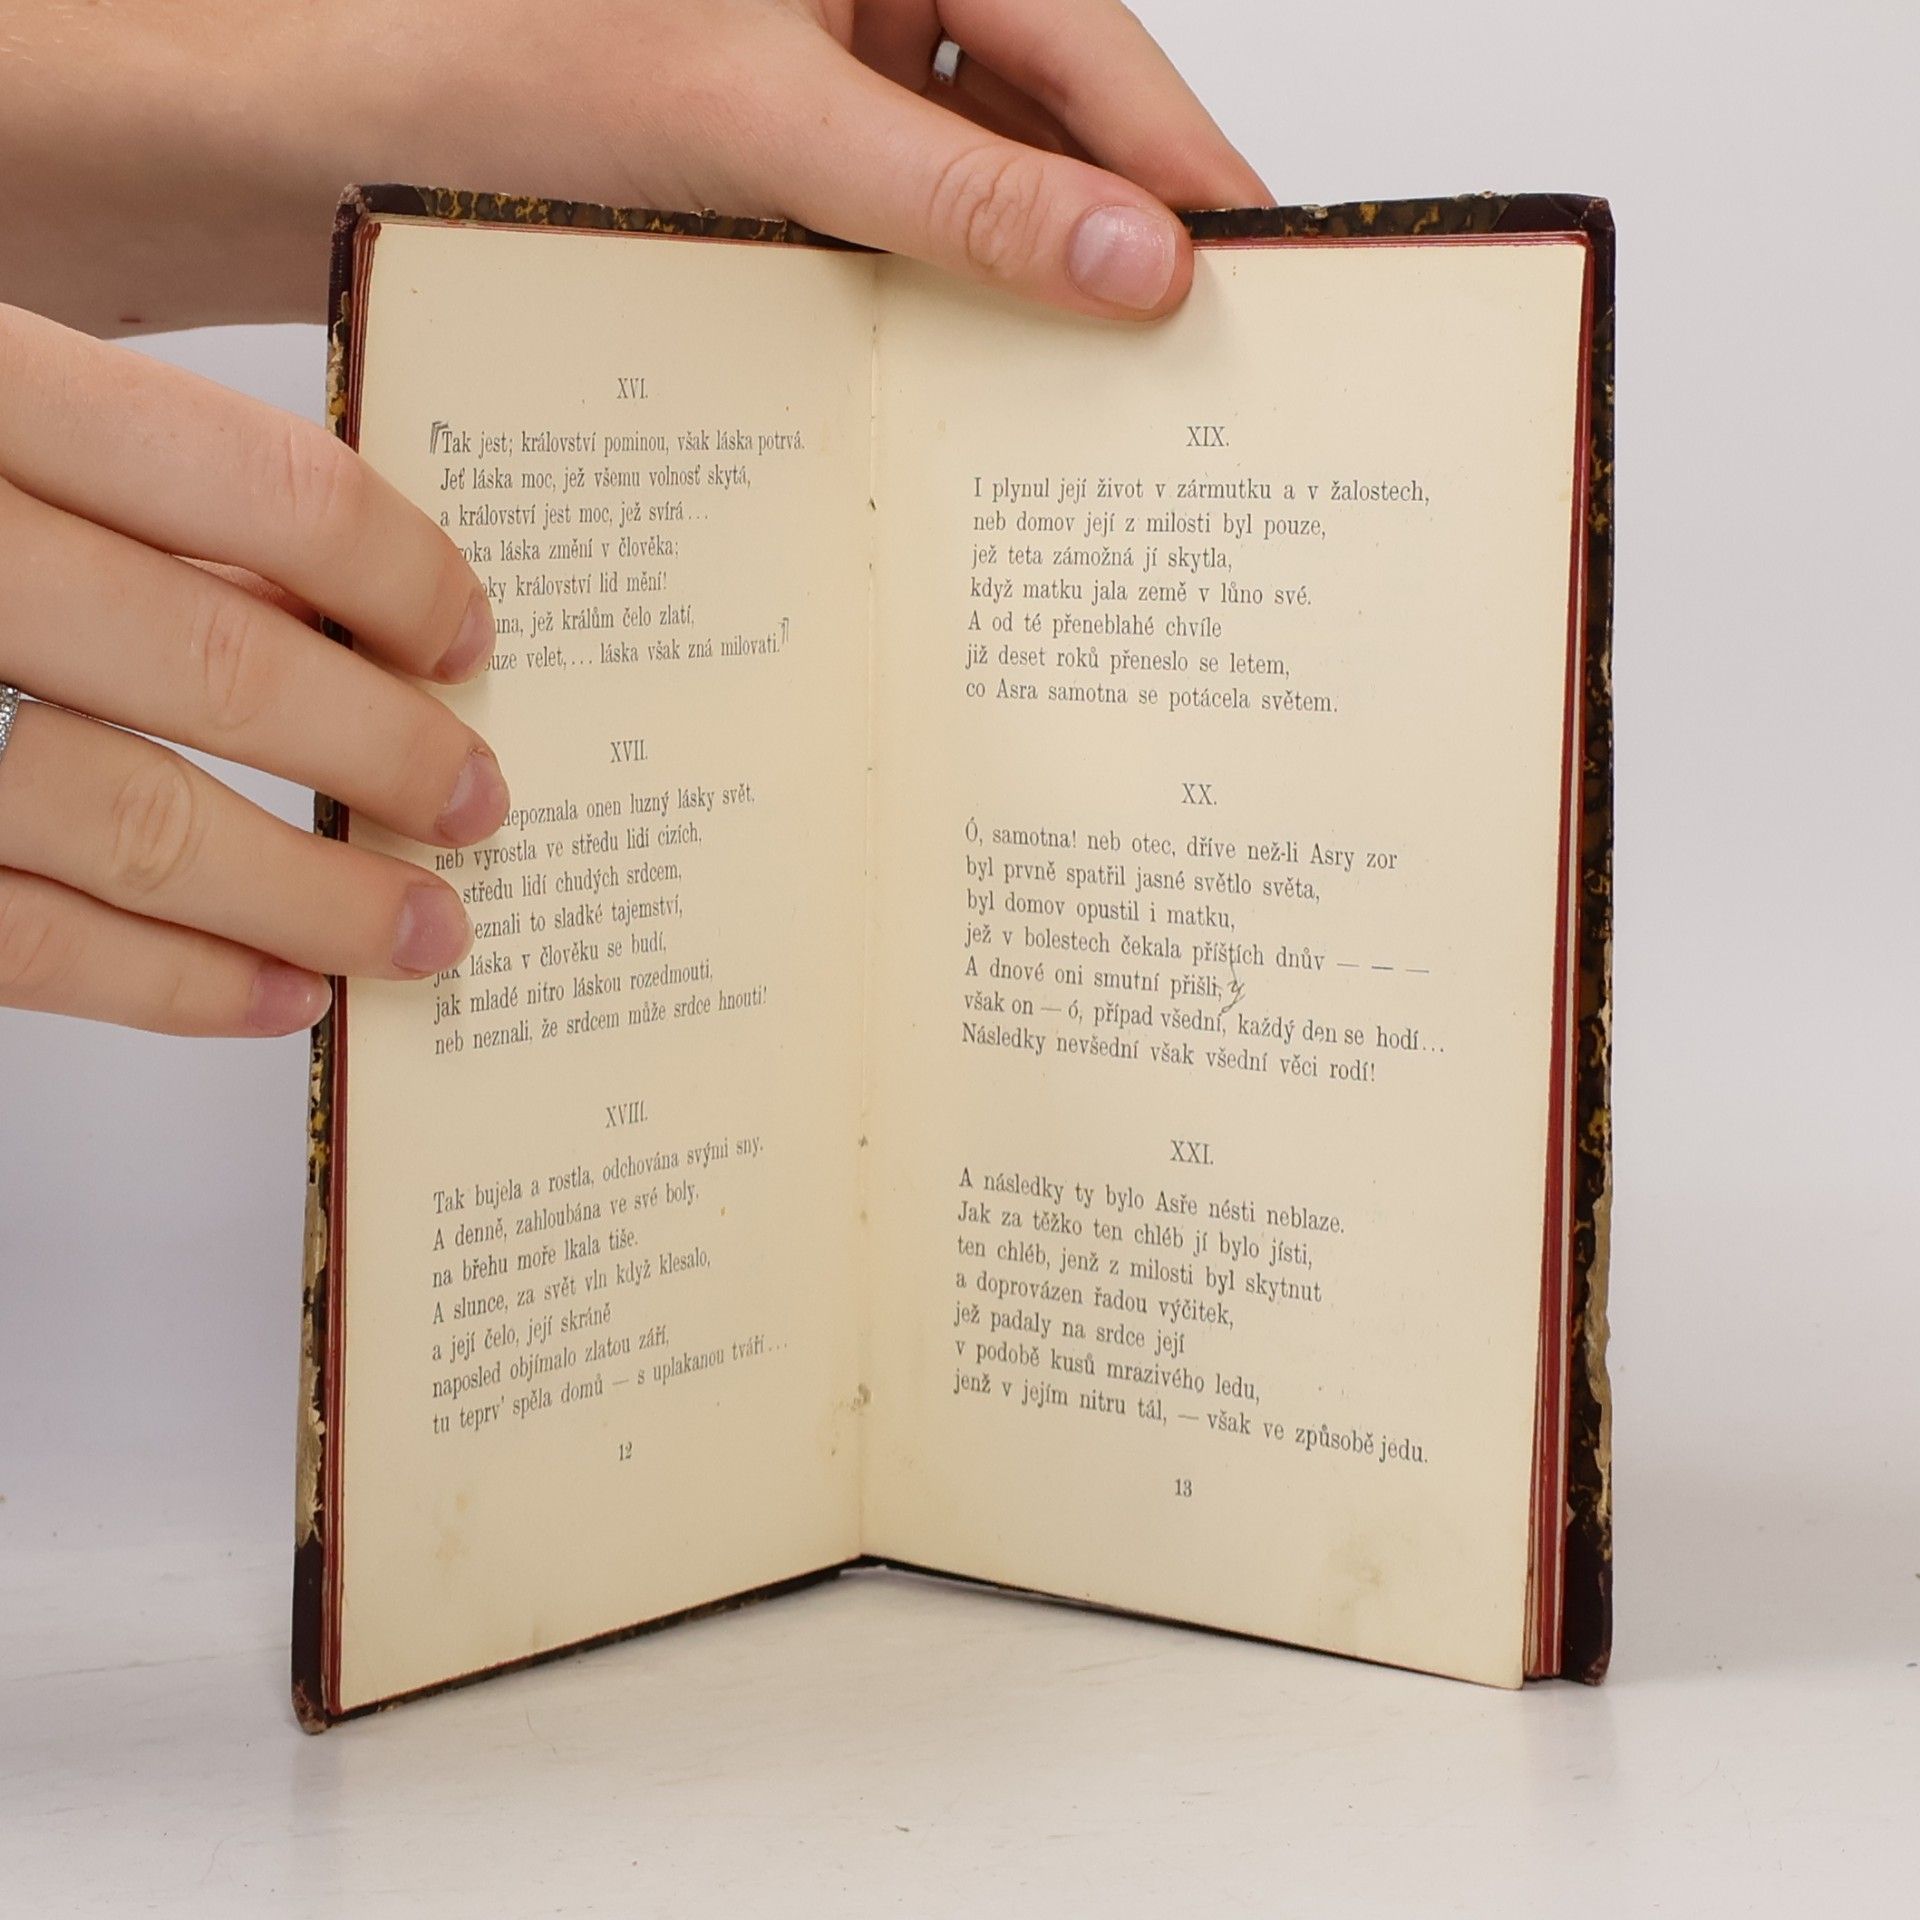 XVI.
Tak jest; království pominou, však láska potrvá.
Jeť láska moc, jež všemu volnosť skytá,
a království jest moc, jež svírá...
láska změní v člověka;
království lid mění!
jež králům čelo zlatí,
velet,... láska však zná milovati.
XVII.
nepoznala onen luzný lásky svět,
neb vyrostla ve středu lidí cizích,
středu lidí chudých srdcem,
neznali to sladké tajemství,
jak láska v člověku se budí,
jak mladé nitro láskou rozedmouti,
neb neznali, že srdcem může srdce hnouti!
XVIII.
Tak bujela a rostla, odchována svými sny.
A denně, zahloubána ve své boly,
na břehu moře lkala tiše.
A slunce, za svět vln když klesalo,
a její čelo, její skráně
naposled objímalo zlatou září,
tu teprv' spěla domů — s uplakanou tváří...
12
XIX.
I plynul její život v zármutku a v žalostech,
neb domov její z milosti byl pouze,
jež teta zámožná jí skytla,
když matku jala země v lůno své.
A od té přeneblahé chvíle
již deset roků přeneslo se letem,
co Asra samotna se potácela světem.
XX.
Ó, samotna! neb otec, dříve než-li Asry zor
byl prvně spatřil jasné světlo světa,
byl domov opustil i matku,
jež v bolestech čekala příštích dnův — — —
A dnové oni smutní přišli, y
však on — ó, případ všední, každý den se hodí...
Následky nevšední však všední věci rodí!
XXI.
A následky ty bylo Asře nésti neblaze.
Jak za těžko ten chléb jí bylo jísti,
ten chléb, jenž z milosti byl skytnut
a doprovázen řadou výčitek,
jež padaly na srdce její
v podobě kusů mrazivého ledu,
jenž v jejím nitru tál, — však ve způsobě jedu.
13